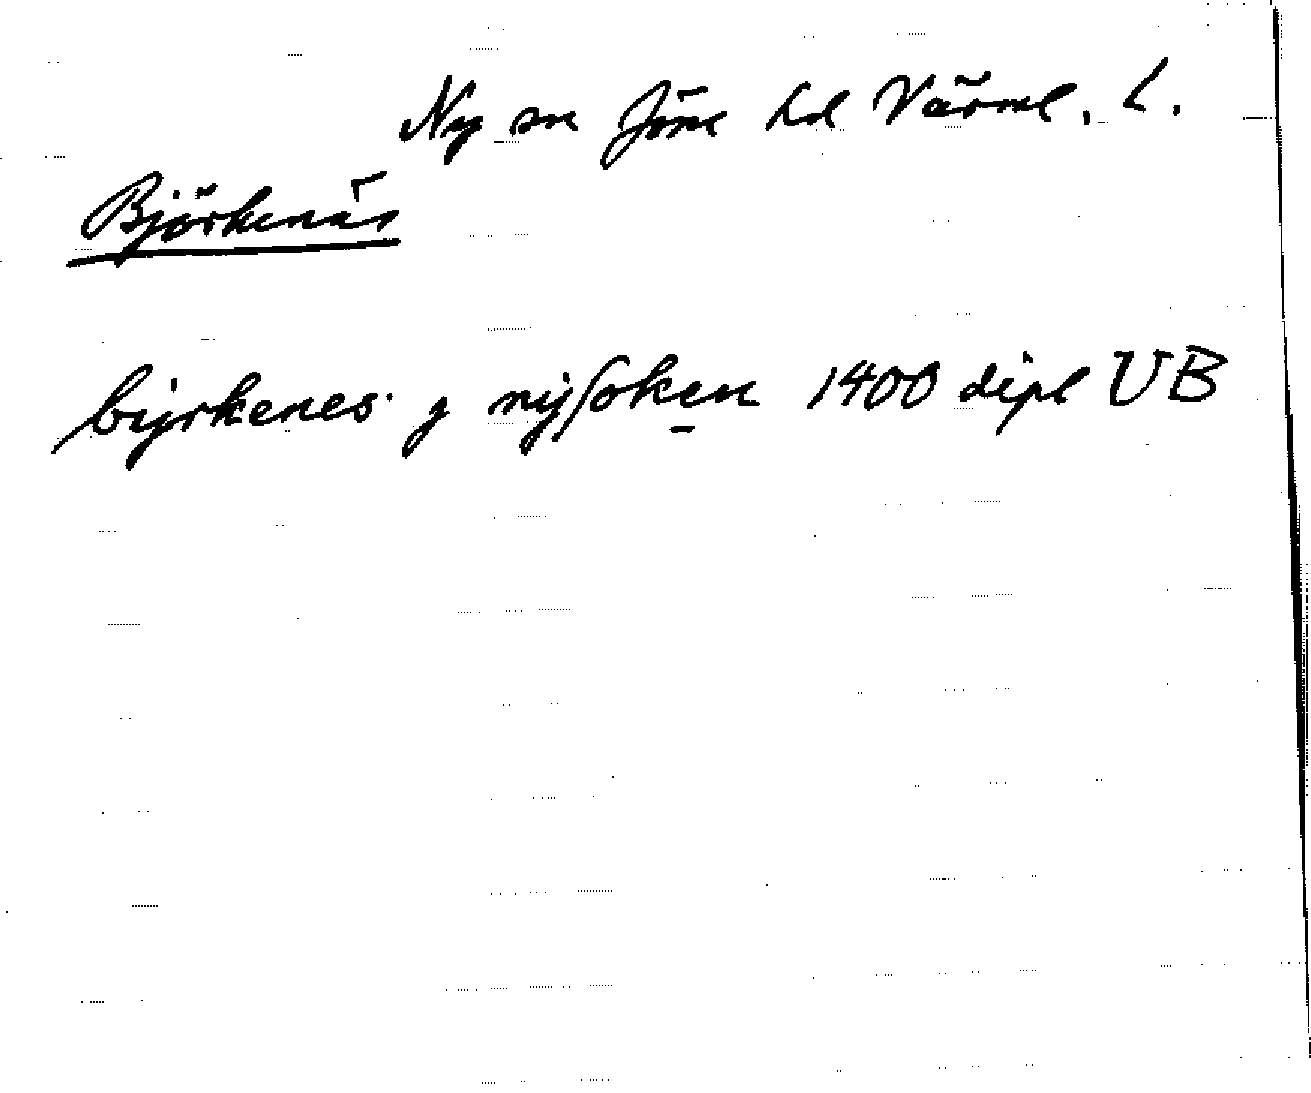 Ny sn Jöse hd Värml. L.
Björkenäs
biyrkenes j nijsoken 1400 dipl UB